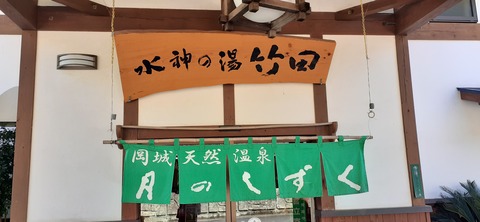 水神の湯 竹田
岡城 天然 温泉
月のしずく